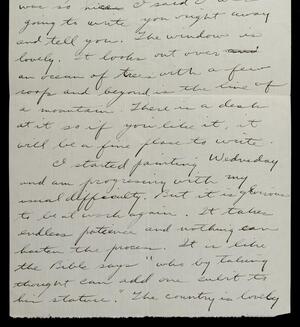 was so nice I said I was
going to write you right away
and tell you. The window is
lovely. It looks out over
an ocean of trees with a few
roofs and beyond is the line of
a mountain. There is a desk
at it so if you like it, it
will be a fine place to write.
I started painting Wednesday
and am progressing with my
usual difficulty. But it is glorious
to be at work again. It takes
endless patience and nothing can
hasten the process. It is like
the Bible says "who by taking
thought can add one cubit to
his stature." The country is lovely